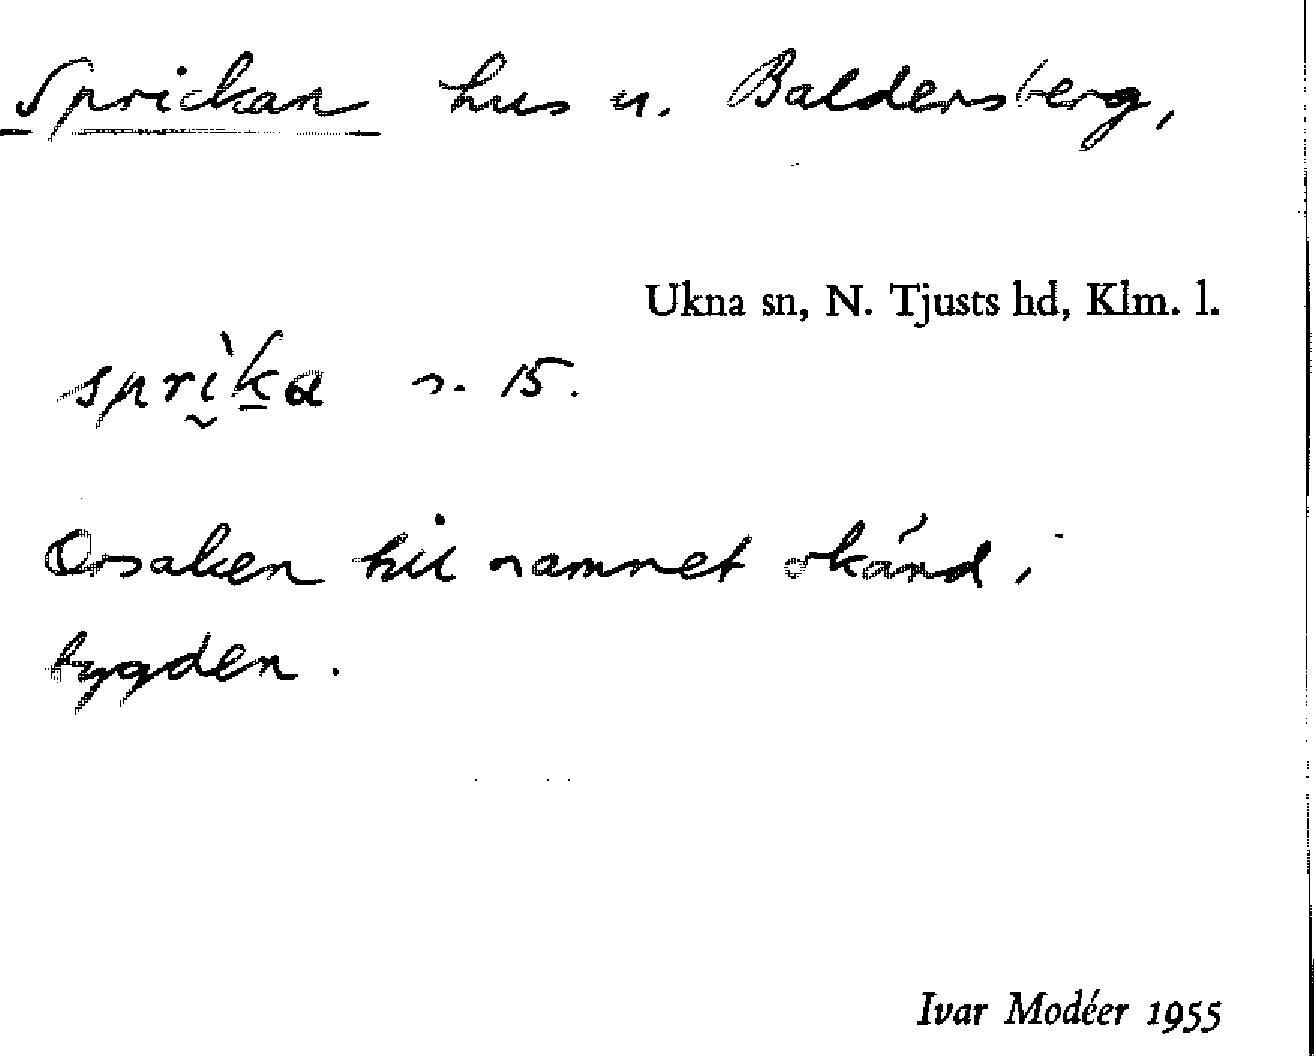 Sprickan hus u. Baldersberg,
Ukna sn, N. Tjusts hd, Klm. l.
sprìka s. 15.
Orsaken till namnet okänd i
bygden.
Ivar Modéer 1955